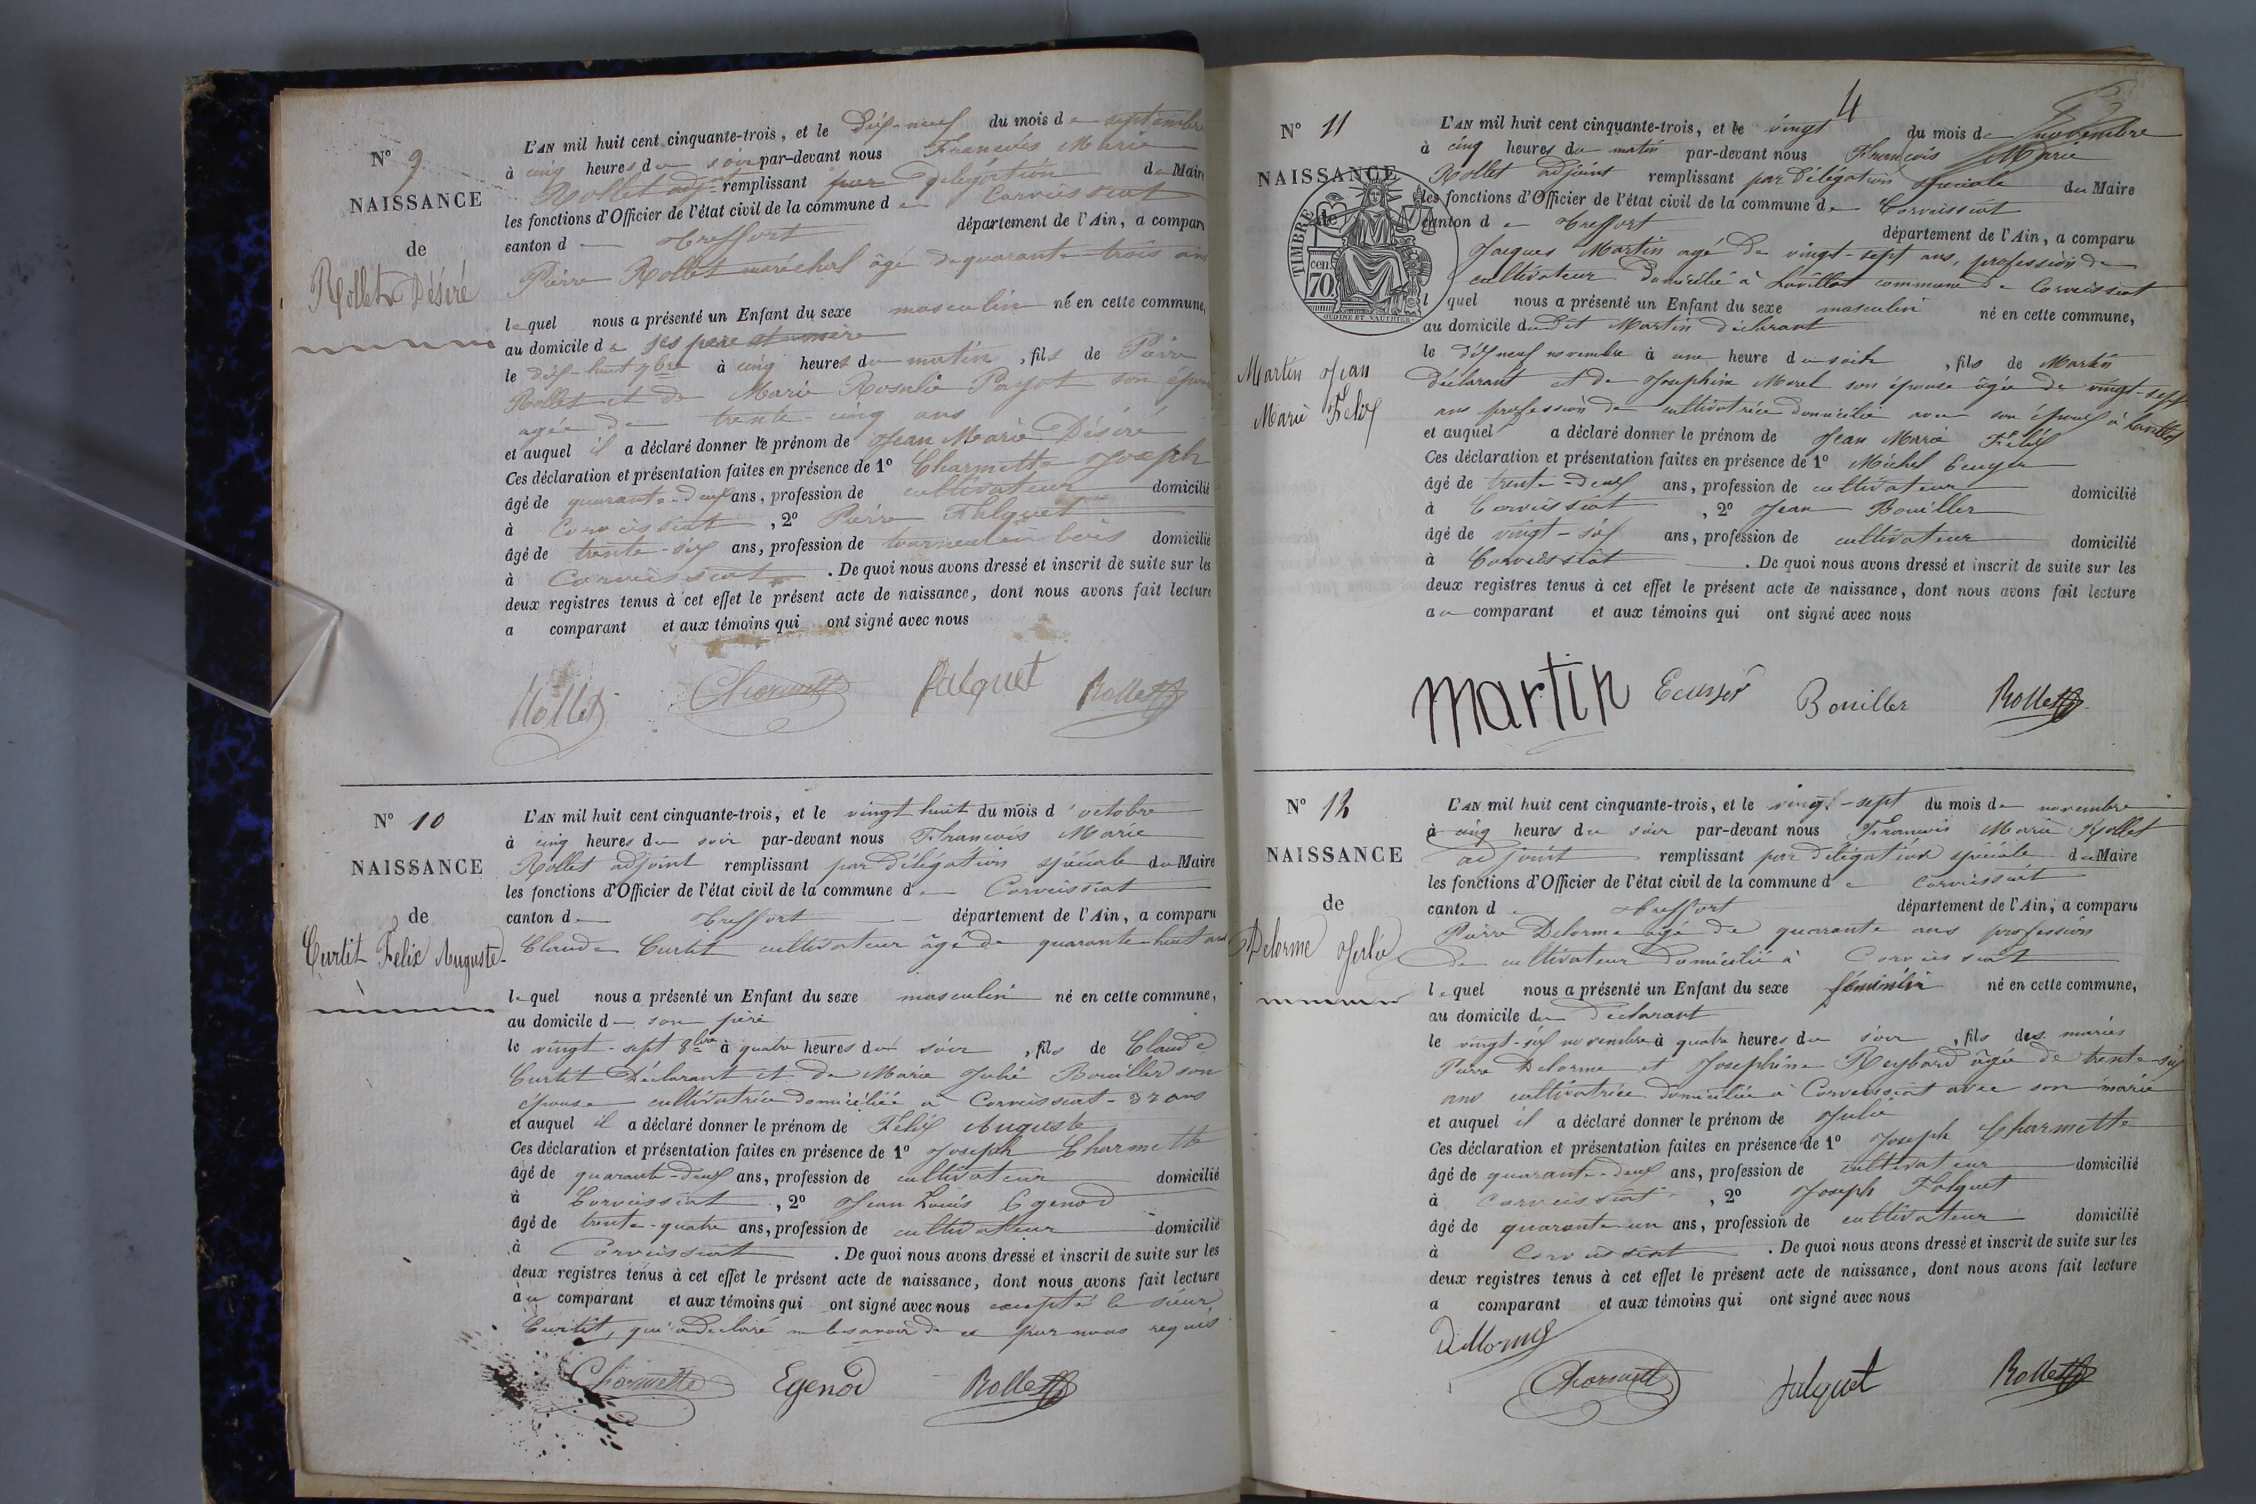 N° 9
NAISSANCE
de
Rollet Désiré
L'AN mil huit cent cinquante-trois, et le dix-neuf du mois de septembre
à cinq heures du soir par-devant nous François Marie
Rollet adjt remplissant par délégation du Maire
les fonctions d'Officier de l'état civil de la commune de Corveissiat
canton de Treffort département de l'Ain, a comparu
Pierre Rollet maréchal âgé de quarante-trois ans
lequel nous a présenté un Enfant du sexe masculin né en cette commune,
au domicile de ses père et mère
le dix-huit 7bre à cinq heures du matin, fils de Pierre
Rollet et de Marie Rosalie Payot son épouse
agée de trente-cinq ans
et auquel il a déclaré donner le prénom de Jean Marie Désiré
Ces déclaration et présentation faites en présence de 1° Charmette Joseph
âgé de quarante-deux ans, profession de cultivateur domicilié
à Corveissiat, 2° Pierre Falquet
âgé de trente-six ans, profession de tourneur en bois domicilié
à Corveissiat. De quoi nous avons dressé et inscrit de suite sur les
deux registres tenus à cet effet le présent acte de naissance, dont nous avons fait lecture
a comparant et aux témoins qui ont signé avec nous
Rollet Charmette falquet Rollet
N° 10
NAISSANCE
de
Curtit Felix Auguste
L'AN mil huit cent cinquante-trois, et le vingt huit du mois d'octobre
à cinq heures du soir par-devant nous François Marie
Rollet adjoint remplissant par délégation spéciale du Maire
les fonctions d'Officier de l'état civil de la commune de Corveissiat
canton de Treffort département de l'Ain, a comparu
Claude Curtit cultivateur âgé de quarante-huit ans
lequel nous a présenté un Enfant du sexe masculin né en cette commune,
au domicile de son père
le vingt-sept 8bre à quatre heures du soir, fils de Claude
Curtit Déclarant et de Marie Julie Bouiller son
épouse cultivatrice domiciliée à Corveissiat - 32 ans
et auquel il a déclaré donner le prénom de Félix Auguste
Ces déclaration et présentation faites en présence de 1° Joseph Charmette
âgé de quarante-deux ans, profession de cultivateur domicilié
à Corveissiat, 2° Jean Louis Egenod
âgé de trente-quatre ans, profession de cultivateur domicilié
à Corveissiat. De quoi nous avons dressé et inscrit de suite sur les
deux registres tenus à cet effet le présent acte de naissance, dont nous avons fait lecture
au comparant et aux témoins qui ont signé avec nous excepté le sieur
Curtit, qui a déclaré ne le savoir de ce par nous requis
Charmette Egenod Rollet
4
N° 11
NAISSANCE
TIMBRE
cen.
70
OUDINE ET VAUTHIER
Martin Jean
Marie Félix
L'AN mil huit cent cinquante-trois, et le vingt du mois de novembre
à cinq heures du matin par-devant nous François Marie
Rollet adjoint remplissant par délégation spéciale du Maire
les fonctions d'Officier de l'état civil de la commune de Corveissiat
canton de Treffort département de l'Ain, a comparu
Jacques Martin agé de vingt-sept ans, profession de
cultivateur domicilié à commune de Corveissiat
lequel nous a présenté un Enfant du sexe masculin né en cette commune,
au domicile dudit Martin déclarant
le dix neuf novembre à une heure du soir, fils de Martin
déclarant et de Josephine Morel son épouse âgée de vingt-sept
ans profession de cultivatrice domicilié avec son époux à
et auquel a déclaré donner le prénom de Jean Marie Félix
Ces déclaration et présentation faites en présence de 1° Michel
âgé de trente-deux ans, profession de cultivateur domicilié
à Corveissiat, 2° Jean Bouiller
âgé de vingt-six ans, profession de cultivateur domicilié
à Corveissiat. De quoi nous avons dressé et inscrit de suite sur les
deux registres tenus à cet effet le présent acte de naissance, dont nous avons fait lecture
au comparant et aux témoins qui ont signé avec nous
Martin Bouiller Rollet
N° 12
NAISSANCE
de
Delorme Julie
L'AN mil huit cent cinquante-trois, et le vingt-sept du mois de novembre
à cinq heures du soir par-devant nous François Marie Rollet
adjoint remplissant par délégation spéciale du Maire
les fonctions d'Officier de l'état civil de la commune de Corveissiat
canton de Treffort département de l'Ain, a comparu
Pierre Delorme agé de quarante ans profession
de cultivateur domicilié à Corveissiat
lequel nous a présenté un Enfant du sexe féminin né en cette commune,
au domicile du Déclarant
le vingt-six novembre à quatre heures du soir, fils des mariés
Pierre Delorme et Josephine Reybard âgée de trente-six
ans cultivatrice domiciliée à Corveissiat avec son marie
et auquel il a déclaré donner le prénom de Julie
Ces déclaration et présentation faites en présence de 1° Joseph Charmette
âgé de quarante-deux ans, profession de cultivateur domicilié
à Corveissiat, 2° Joseph Falquet
âgé de quarante-un ans, profession de cultivateur domicilié
à Corveissiat. De quoi nous avons dressé et inscrit de suite sur les
deux registres tenus à cet effet le présent acte de naissance, dont nous avons fait lecture
a comparant et aux témoins qui ont signé avec nous
Charmette falquet Rollet